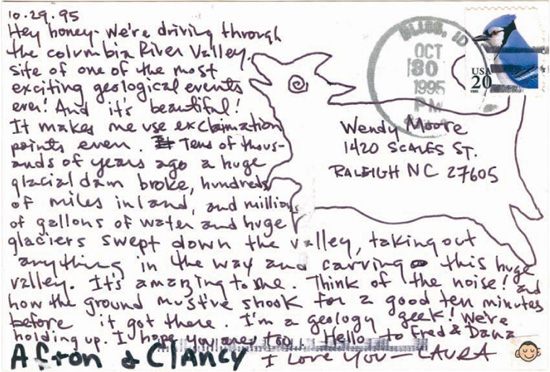 10.29.95
Hey honey - We're driving through
the columbia River Valley,
site of one of the most
exciting geological events
ever! And it's beautiful!
It makes me use exclamation
points even. Tens of thous-
ands of years ago a huge
glacial dam broke, hundreds
of miles inland, and millions
of gallons of water and huge
glaciers swept down the valley, taking out
anything in the way and carving this huge
valley. It's amazing to me. Think of the noise! and
how the ground must've shook for a good ten minutes
before it got there. I'm a geology geek! We're
holding up. I hope you are, too. Hello to Fred & Dana
Afton & Clancy
I Love You - LAURA
BLISS, ID
OCT
30
1995
PM
USA
20
Wendy Moore
1420 SCALES ST.
RALEIGH NC 27605